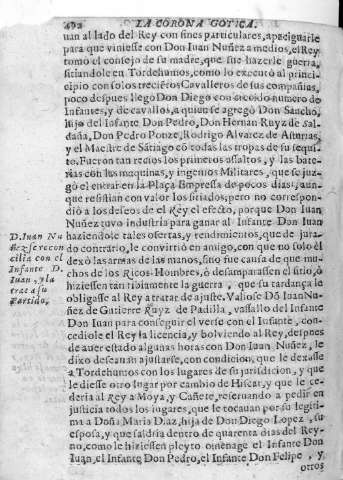 492 LA CORONA GOTICA.
uan al lado del Rey con fines particulares, apaciguarle
para que viniesse con Don Iuan Nuñez a medios, el Rey
tomo el consejo de su madre, que fue hazerle guerra,
sitiandole en Tordehumos, como lo executò al princi-
pio con solos trecietos Cavalleros de sus compañias,
poco despues llegò Don Diego con crecido numero de
Infantes, y de cavallos, a quien se agregò Don Sancho,
hijo del Infante Don Pedro, Don Hernan Ruyz de Sal-
daña, Don Pedro Ponze, Rodrigo Alvarez de Asturias,
y el Maestre de Sātiago cō todas las tropas de su sequi-
to. Fueron tan recios los primeros assaltos, y las bate-
rias con las maquinas, y ingenios Militares, que se juz-
gò el entrar en la Plaça Empressa de pocos dias; aun-
que resistian con valor los sitiados; pero no correspon-
diò a los deseos de el Rey el efecto, porque Don Iuan
Nuñez tuvo industria para ganar al Infante Don Iuan
D. Iuan Nu-
ñez se recon
cilia con el
Infante D.
Iuan, y la
trae a su
partido.
haziendole tales ofertas, y rendimientos, que de jura-
do contrario, le convirtiò en amigo, con que no solo èl
dexò las armas de las manos, sino fue causa de que mu-
chos de los Ricos-Hombres, ò desamparassen el sitio, ò
hiziessen tan tibiamente la guerra, que su tardança le
obligasse al Rey a tratar de ajuste. Valiose Dō Iuan Nu-
ñez de Gutierre Ruyz de Padilla, vassallo del Infante
Don Iuan para conseguir el verse con el Infante, con-
cediole el Rey la licencia, y bolviendo al Rey, despues
de auer estado algunas horas con Don Iuan Nuñez, le
dixo desean ajustarse, con condicion, que le dexasse
a Tordehumos con los lugares de su jurisdicion, y que
le diesse otro lugar por cambio de Hiscar, y que le ce-
deria al Rey a Moya, y Cañete, reseruando a pedir en
justicia todos los lugares, que le tocauan por su legiti-
ma a Doña Maria Diaz, hija de Don Diego Lopez, su
esposa, y que saldria dentro de quarenta dias del Rey-
no, como le hiziessen pleyto omenage el Infante Don
Iuan, el Infante Don Pedro, el Infante Don Felipe, y
otros